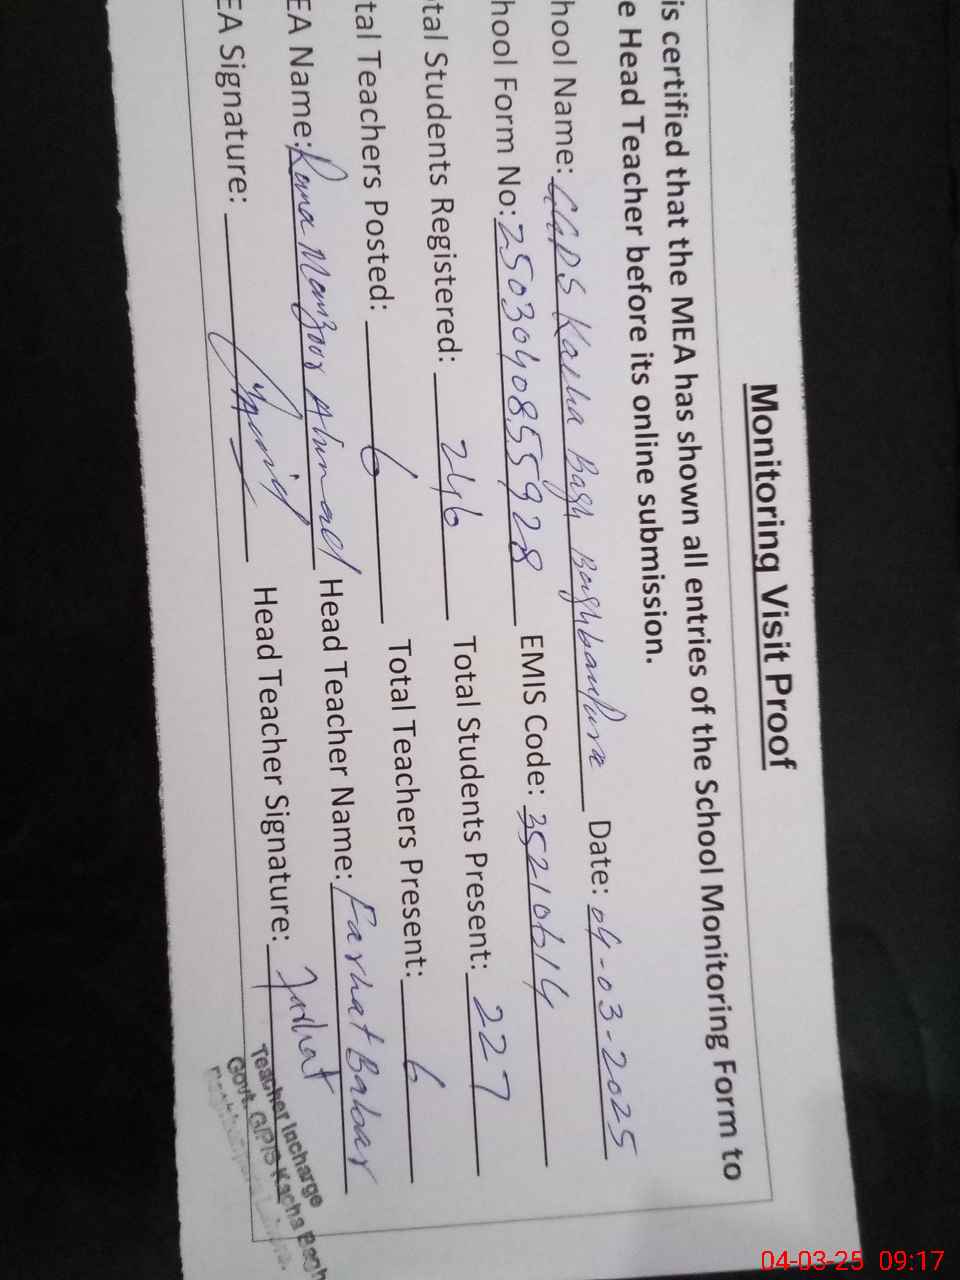 Monitoring Visit Proof
is certified that the MEA has shown all entries of the School Monitoring Form to
e Head Teacher before its online submission.
hool Name: GGPS Kacha Bagh Baghbanpura Date: 04-03-2025
hool Form No: 2503040855928 EMIS Code: 35210614
tal Students Registered: 246 Total Students Present: 227
tal Teachers Posted: 6 Total Teachers Present: 6
EA Name: Rana Manzoor Ahmad Head Teacher Name: Farhat Babar
EA Signature: Head Teacher Signature: Farhat
Teacher Incharge
Govt. G/P/S Kacha Bagh
04-03-25 09:17